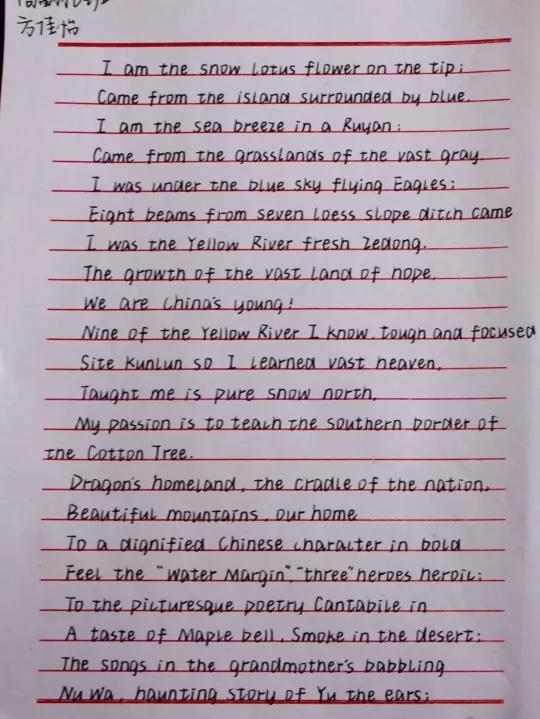 方佳怡
I am the snow lotus flower on the tip;
Came from the island surrounded by blue.
I am the sea breeze in a Ruyan;
Came from the grasslands of the vast gray.
I was under the blue sky flying Eagles;
Eight beams from seven loess slope ditch came
I was the Yellow River fresh Zedong.
The growth of the vast land of hope.
We are China's young!
Nine of the Yellow River I know, tough and focused
Site Kunlun so I learned vast heaven,
Taught me is pure snow north,
My passion is to teach the southern border of
the Cotton Tree.
Dragon's homeland, the cradle of the nation,
Beautiful mountains, our home
To a dignified Chinese character in bold
Feel the "Water Margin", "three" heroes heroic;
To the picturesque poetry Cantabile in
A taste of Maple bell, Smoke in the desert;
The songs in the grandmother's babbling
Nu Wa, haunting story of Yu the ears;